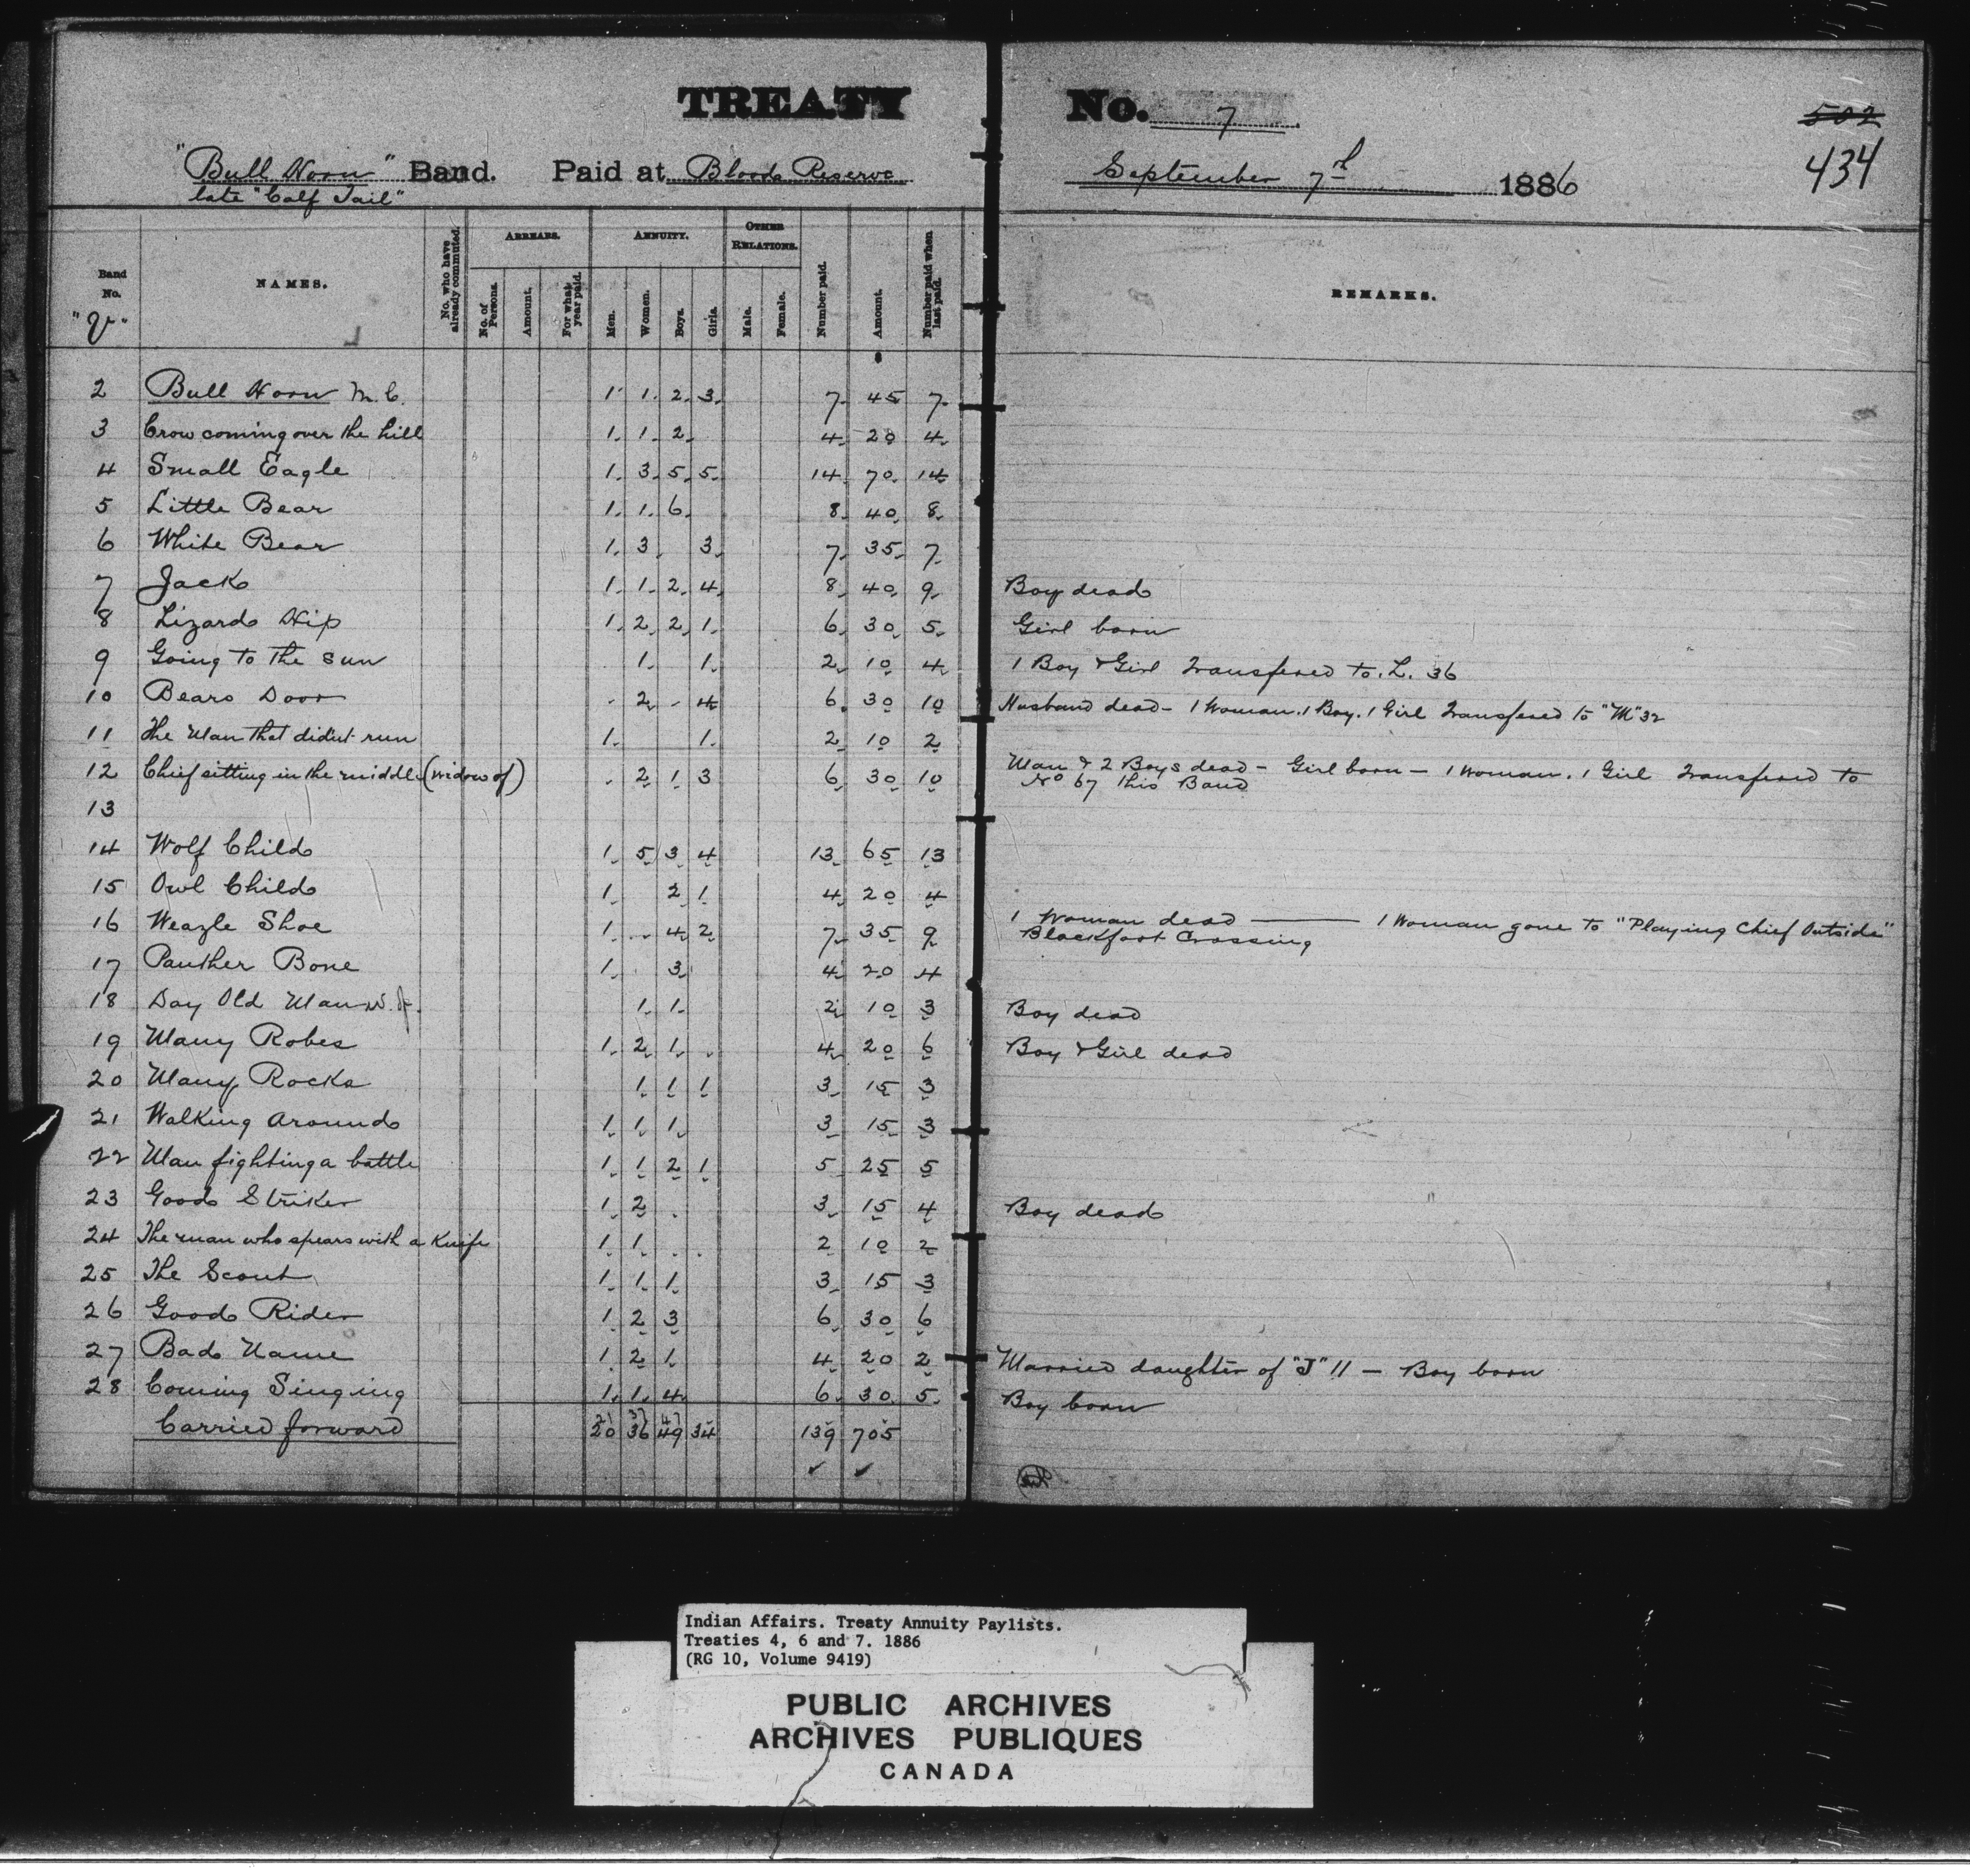 TREATY No. 7
502
434
"Bull Horn" Band. Paid at Bloods Reserve September 7th 1886
late "Calf Tail"
Band No.
NAMES.
No. who have already commuted.
ARREARS.
No. of Persons.
Amount.
For what year paid.
ANNUITY.
Men.
Women.
Boys.
Girls.
OTHER RELATIONS.
Male.
Female.
Number paid.
Amount.
Number paid when last paid.
REMARKS.
2 Bull Horn M.C. 1 1 2 3 7 45 7
3 Crow coming over the hill 1 1 2 4 20 4
4 Small Eagle 1 3 5 5 14 70 14
5 Little Bear 1 1 6 8 40 8
6 White Bear 1 3 3 7 35 7
7 Jack 1 1 2 4 8 40 9 Boy dead
8 Lizards Hip 1 2 2 1 6 30 5 Girl born
9 Going to the sun 1 1 2 10 4 1 Boy & Girl Transfered to. L. 36
10 Bears Door 2 4 6 30 10 Husband dead - 1 Woman. 1 Boy. 1 Girl Transfered to "M" 32
11 The Man that didn't run 1 1 2 10 2
12 Chief sitting in the middle (widow of) 2 1 3 6 30 10 Man & 2 Boys dead - Girl born - 1 Woman. 1 Girl Transfered to
No 67 this Band
13
14 Wolf Child 1 5 3 4 13 65 13
15 Owl Child 1 2 1 4 20 4
16 Weazle Shoe 1 4 2 7 35 9 1 Woman dead — 1 Woman gone to "Playing Chief Outside"
Blackfoot Crossing
17 Panther Bone 1 3 4 20 4
18 Day Old Man W. of. 1 1 2 10 3 Boy dead
19 Many Robes 1 2 1 4 20 6 Boy & Girl dead
20 Many Rocks 1 1 1 3 15 3
21 Walking Around 1 1 1 3 15 3
22 Man fighting a battle 1 1 2 1 5 25 5
23 Good Striker 1 2 3 15 4 Boy dead
24 The man who spears with a Knife 1 1 2 10 2
25 The Scout 1 1 1 3 15 3
26 Good Rider 1 2 3 6 30 6
27 Bad Name 1 2 1 4 20 2 Married daughter of "J" 11 - Boy born
28 Coming Singing 1 1 4 6 30 5 Boy born
Carried forward 20 36 49 34 139 705
Indian Affairs. Treaty Annuity Paylists.
Treaties 4, 6 and 7. 1886
(RG 10, Volume 9419)
PUBLIC ARCHIVES
ARCHIVES PUBLIQUES
CANADA